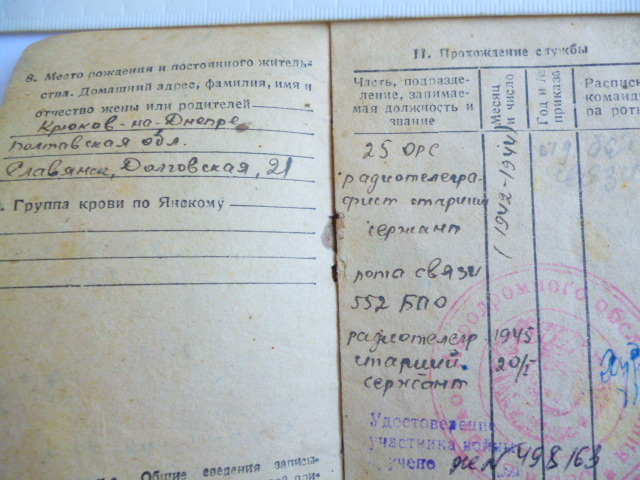 8. Место рождения и постоянного житель-
ства. Домашний адрес, фамилия, имя и
отчество жены или родителей
Крюков-на-Днепре
Полтавская обл.
Славянск, Долговская, 21
Группа крови по Янскому
Общие сведения
II. Прохождение службы
Часть, подразде-
ление, занимае-
мая должность и
звание
Месяц
и число
Год и
приказа
Распис
команд
ра рот
25 ОРС
радиотелегра-
фист старший
сержант
(1942-1944)
рота связи
552 БПО
радиотелегр
старший
сержант
1945
20/I
Удостоверение
участника войны
учено
№ 498163